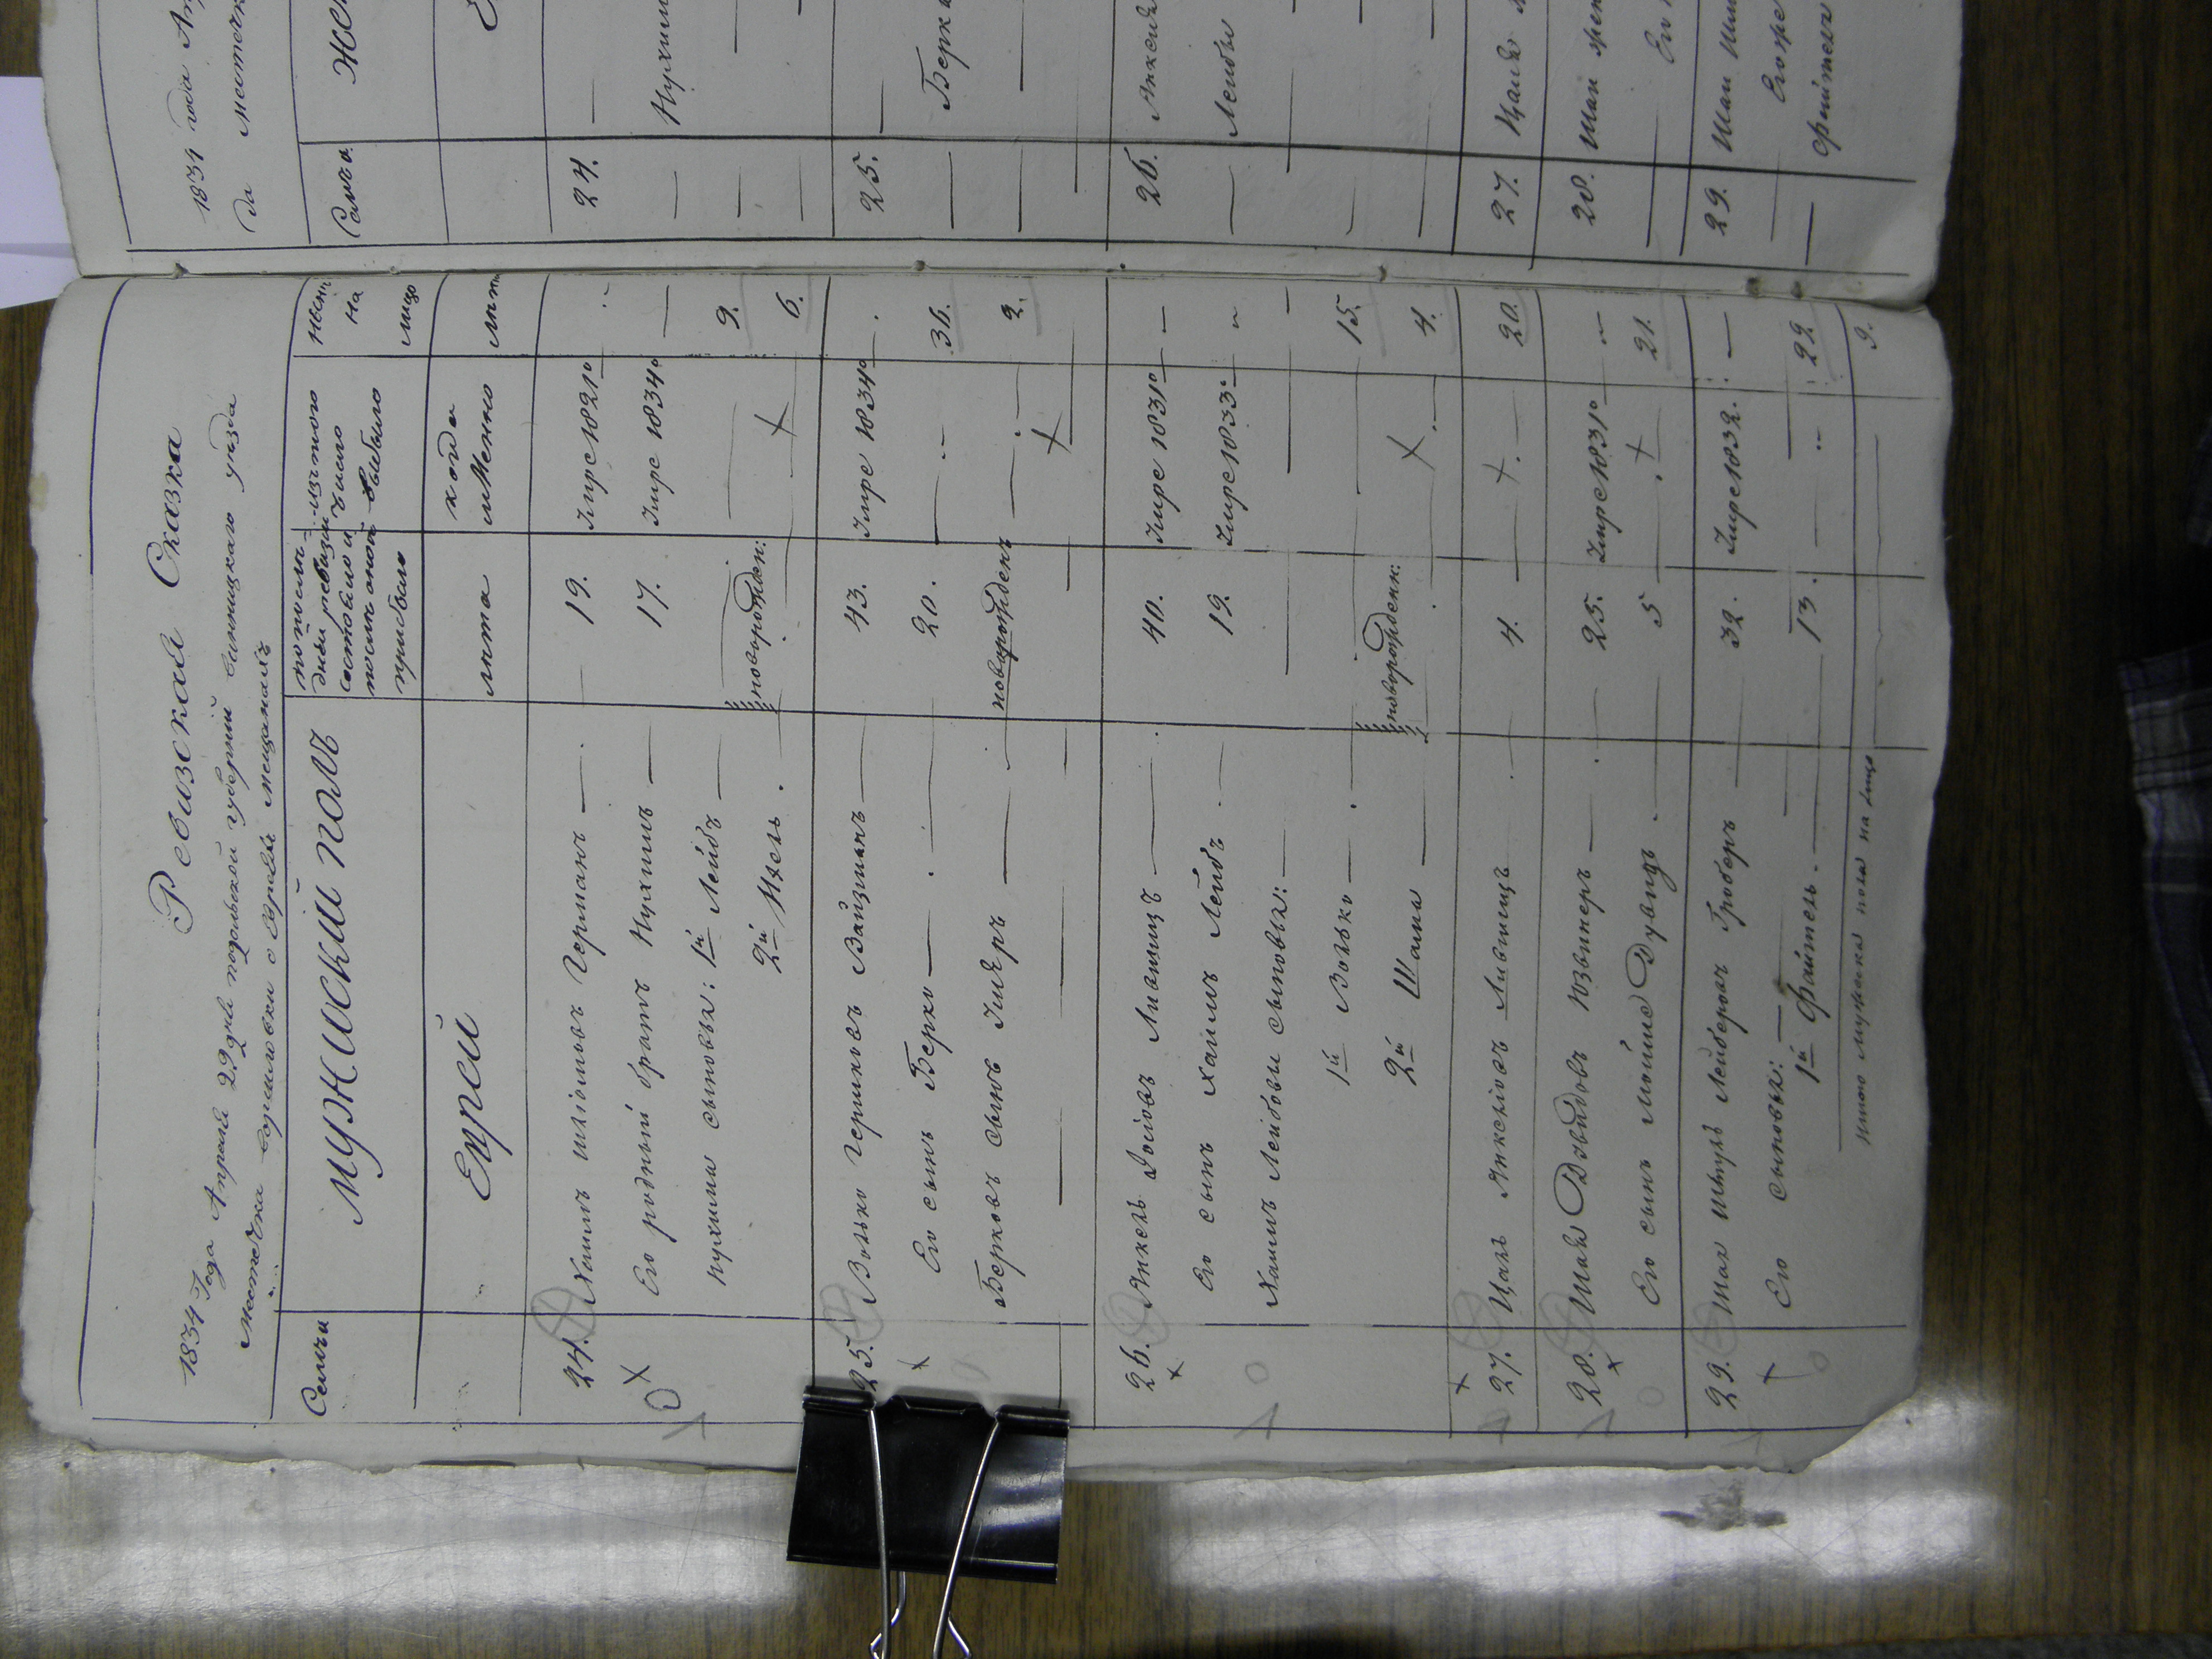 Ревизская Сказка
1834 Года Апреля 29 дня подольской губернии винницкаго уезда
местечка ворошиловки о Евреях мещанахъ
Семьи
Мужиский полъ
по послѣдней ревизіи состояло и послѣ оной прибыло
изътого числа выбыло
ныне на лицо
Еврей
лѣта
когда именно
лѣта
24. Хаимъ Шліомовъ Германъ — 19. Умре 1821º
Его родный братъ Нухимъ — 17. Умре 1834º —
Нухима сыновья: 1й Лейбъ — новорожден: — 9.
2й Ицель . 6.
25. Волько Гершковъ Вайзманъ — 43. Умре 1834º
Его сынъ Берко — 20. — 36.
Берковъ сынъ Імеръ — новорожденъ — 2.
26. Янкель Іосіовъ Лившицъ — 40. Умре 1831º —
Его сынъ Хаимъ Лейбъ — 19. Умре 1833º
Хаимъ Лейбовы сыновья: —
1й Волько — 15.
2й Шама — новорожденн: 4.
27. Цаль Янкеліовъ Лившицъ 4. — 20.
28. Шая Довидовъ Юзвинеръ — 25. Умре 1831º —
Его сынъ Мойше Дувидъ . 5 — 21.
29. Шая Шмуль Лейберовъ Гроберъ — 32. Умре 1832. —
Его сыновья: —
1й Файтель . — 13. — 29
итого мужеска пола на лицо 9.
1834 года Ап
да местечк
Семьи
Жен
Е
24. —
— Нухим
—
—
25. —
— Берк
— —
26. Янкеля
— Лейбы
—
—
27. Цаля
28. Шаи жен
— Его
29. Шаи Шм
— Его же
— Файтеля